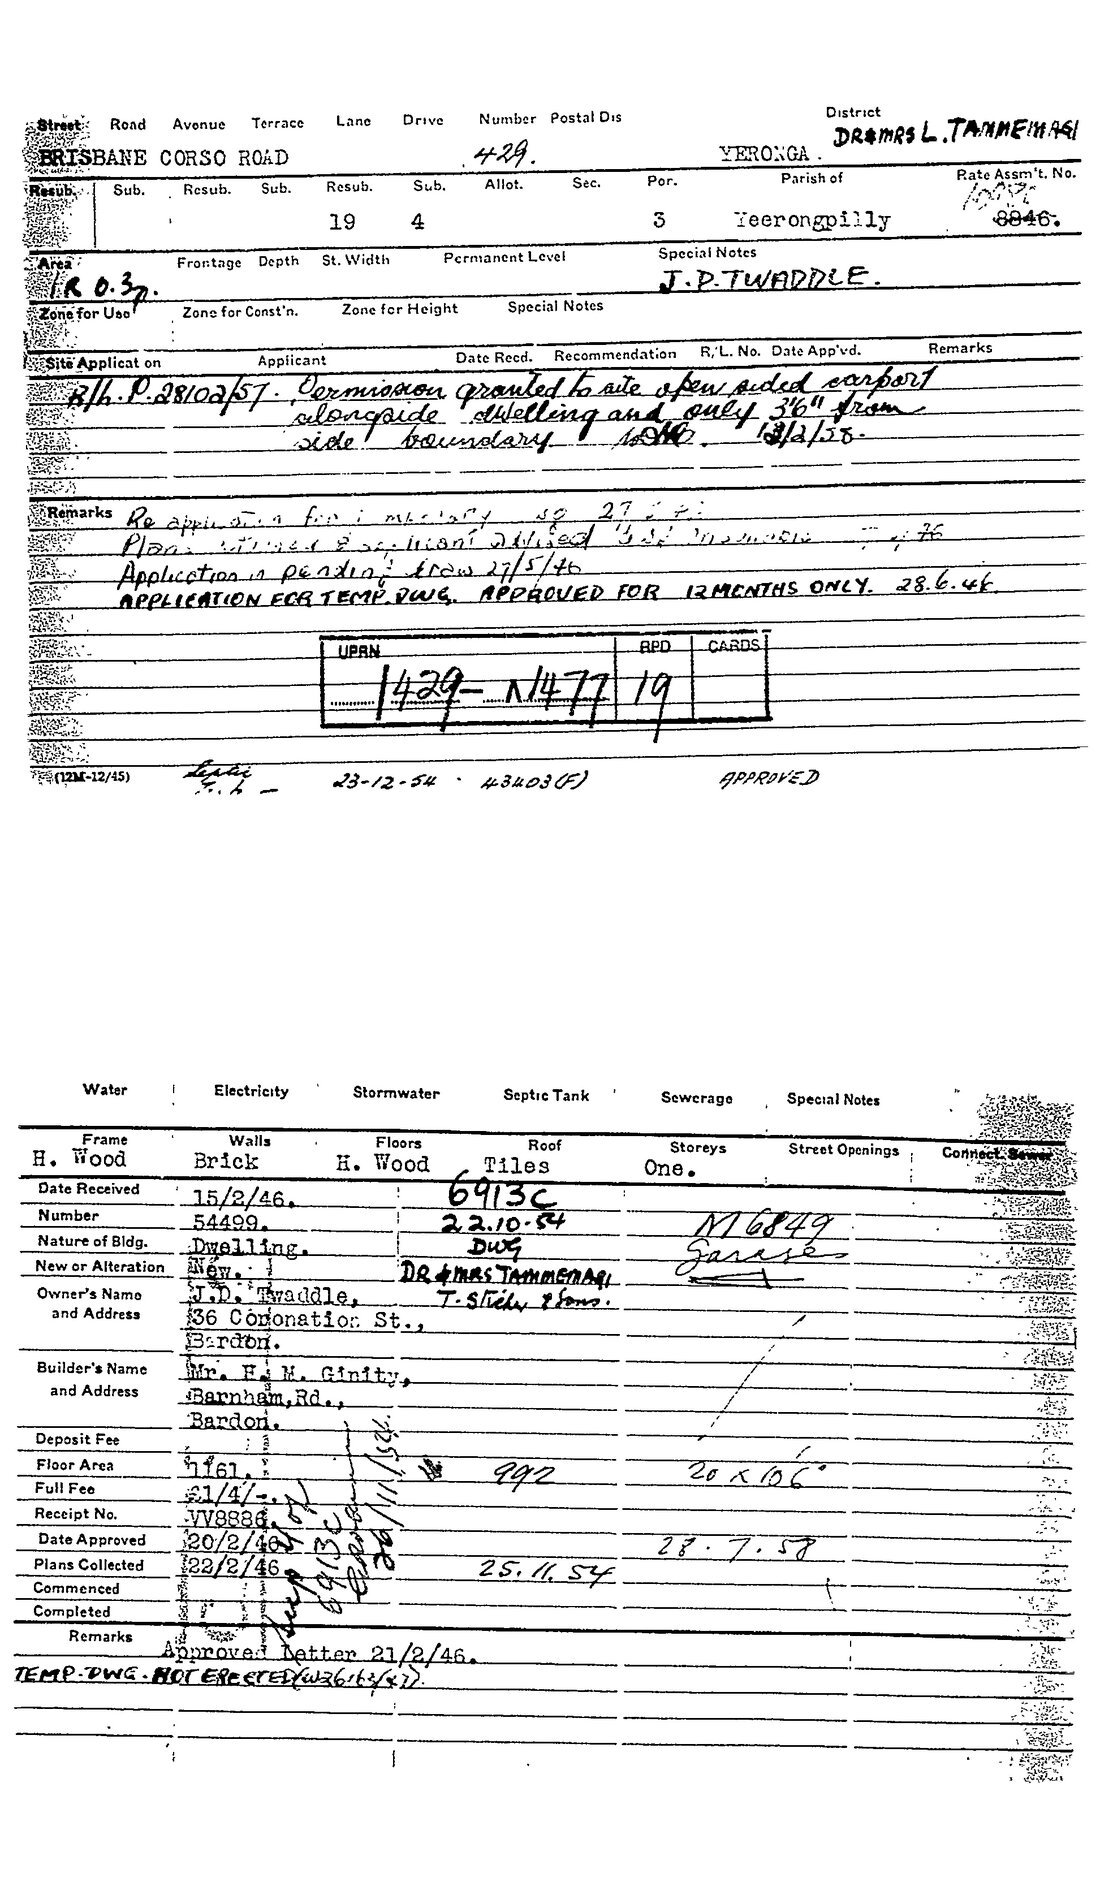 Street Road Avenue Terrace Lane Drive Number Postal Dis District
DR & MRS L. TAMMEMAGI
BRISBANE CORSO ROAD 429. YERONGA.
Resub. Sub. Resub. Sub. Resub. Sub. Allot. Sec. Por. Parish of Rate Assm't. No.
19 4 3 Yeerongpilly 8846.
Area Frontage Depth St. Width Permanent Level Special Notes
1R 0.3p. J.D. TWADDLE.
Zone for Use Zone for Const'n. Zone for Height Special Notes
Site Application Applicant Date Recd. Recommendation R.L. No. Date App'vd. Remarks
P.28102/57. Permission granted to site open sided carport
alongside dwelling and only 3'6" from
side boundary 12/2/58.
Remarks Re application for
Plans applicant advised
Application is pending
APPLICATION FOR TEMP. DWG. APPROVED FOR 12 MONTHS ONLY. 28.6.46.
UPRN RPD CARDS
1429- N1477 19
(12M-12/45) Septic 23-12-54 43403(F) APPROVED
Water Electricity Stormwater Septic Tank Sewerage Special Notes
Frame Walls Floors Roof Storeys Street Openings Connect. Sewer
H. Wood Brick H. Wood Tiles One.
Date Received 15/2/46. 6913C
Number 54499. 22.10.54 M6849
Nature of Bldg. Dwelling. DWG Garages
New or Alteration New. DR & MRS TAMMEMAGI
Owner's Name J.D. Twaddle, & Sons.
and Address 36 Coronation St.,
Bardon.
Builder's Name Mr. H. M. Ginity,
and Address Barnham, Rd.,
Bardon.
Deposit Fee
Floor Area 1161. 992
Full Fee £1/4/-.
Receipt No. VV8886
Date Approved 20/2/46 28.7.58
Plans Collected 22/2/46 25.11.54
Commenced
Completed
6913C
26/11/54.
Remarks
Approved Letter 21/2/46.
TEMP. DWG. NOT ERECTED